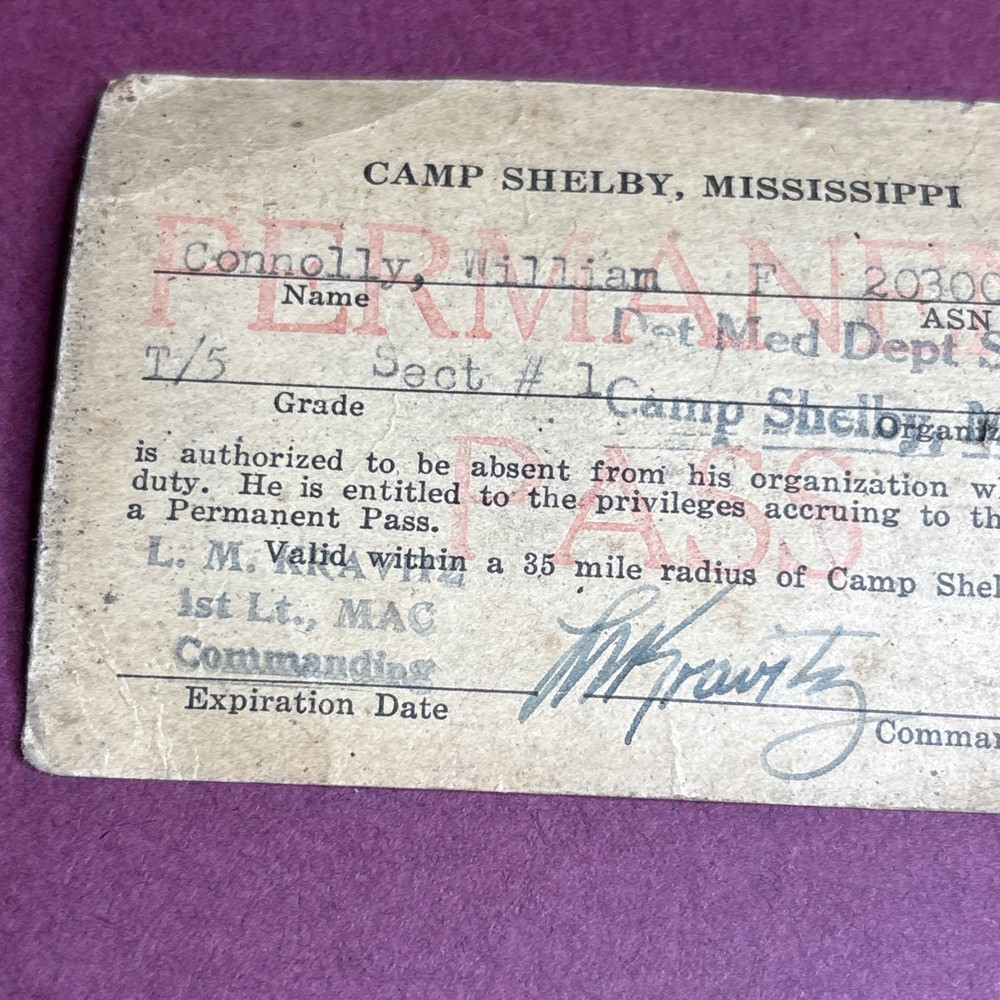 CAMP SHELBY, MISSISSIPPI
PERMANEN
Connolly, William F 20300
Name ASN
Det Med Dept S
T/5 Sect # 1
Grade
Camp Shelby, M
Organiz
is authorized to be absent from his organization w
duty. He is entitled to the privileges accruing to th
a Permanent Pass.
PASS
Valid within a 35 mile radius of Camp Shel
L. M. KRAVITZ
1st Lt., MAC
Commanding
LM Kravitz
Expiration Date Comman